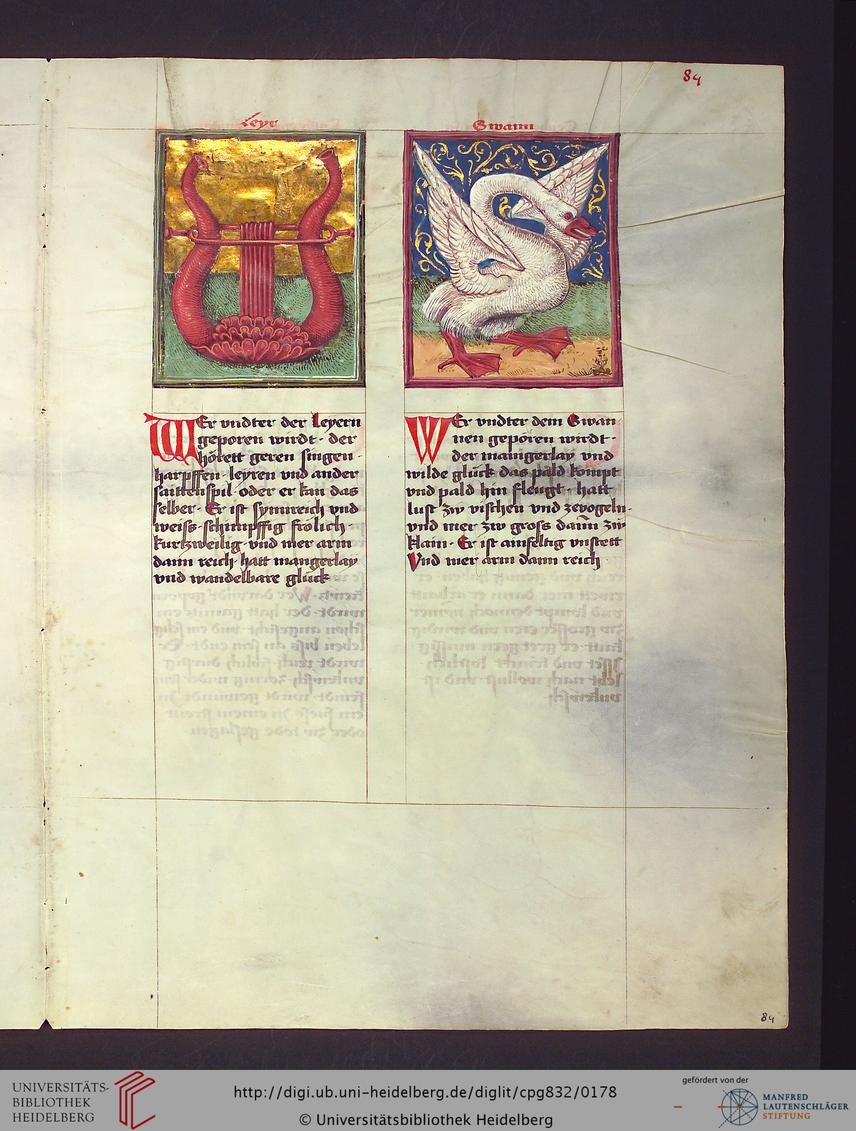 84
Leyr
Swann
WEr vndter der Leyern
geporen wirdt · der
hörett geren singen ·
harpffen · leyren vnd ander
saittenspil · oder er kan das
selber · Er ist synnreich vnd
weiss · schimpffig frölich ·
kurtzweilig · vnd mer arm
dann reich · hatt mangerlay
vnd wandelbare glück
WEr vndter dem Swan
nen geporen wirdt ·
der hatt manigerlay vnd
wilde glück das pald kompt
vnd pald hin fleugt · hatt
lust zw vischen vnd zevogeln ·
vnd mer zw gross dann zw
klain · Er ist ainfeltig vnstett
Vnd mer arm dann reich
84
UNIVERSITÄTS-
BIBLIOTHEK
HEIDELBERG
http://digi.ub.uni-heidelberg.de/diglit/cpg832/0178
© Universitätsbibliothek Heidelberg
gefördert von der
MANFRED
LAUTENSCHLÄGER
STIFTUNG